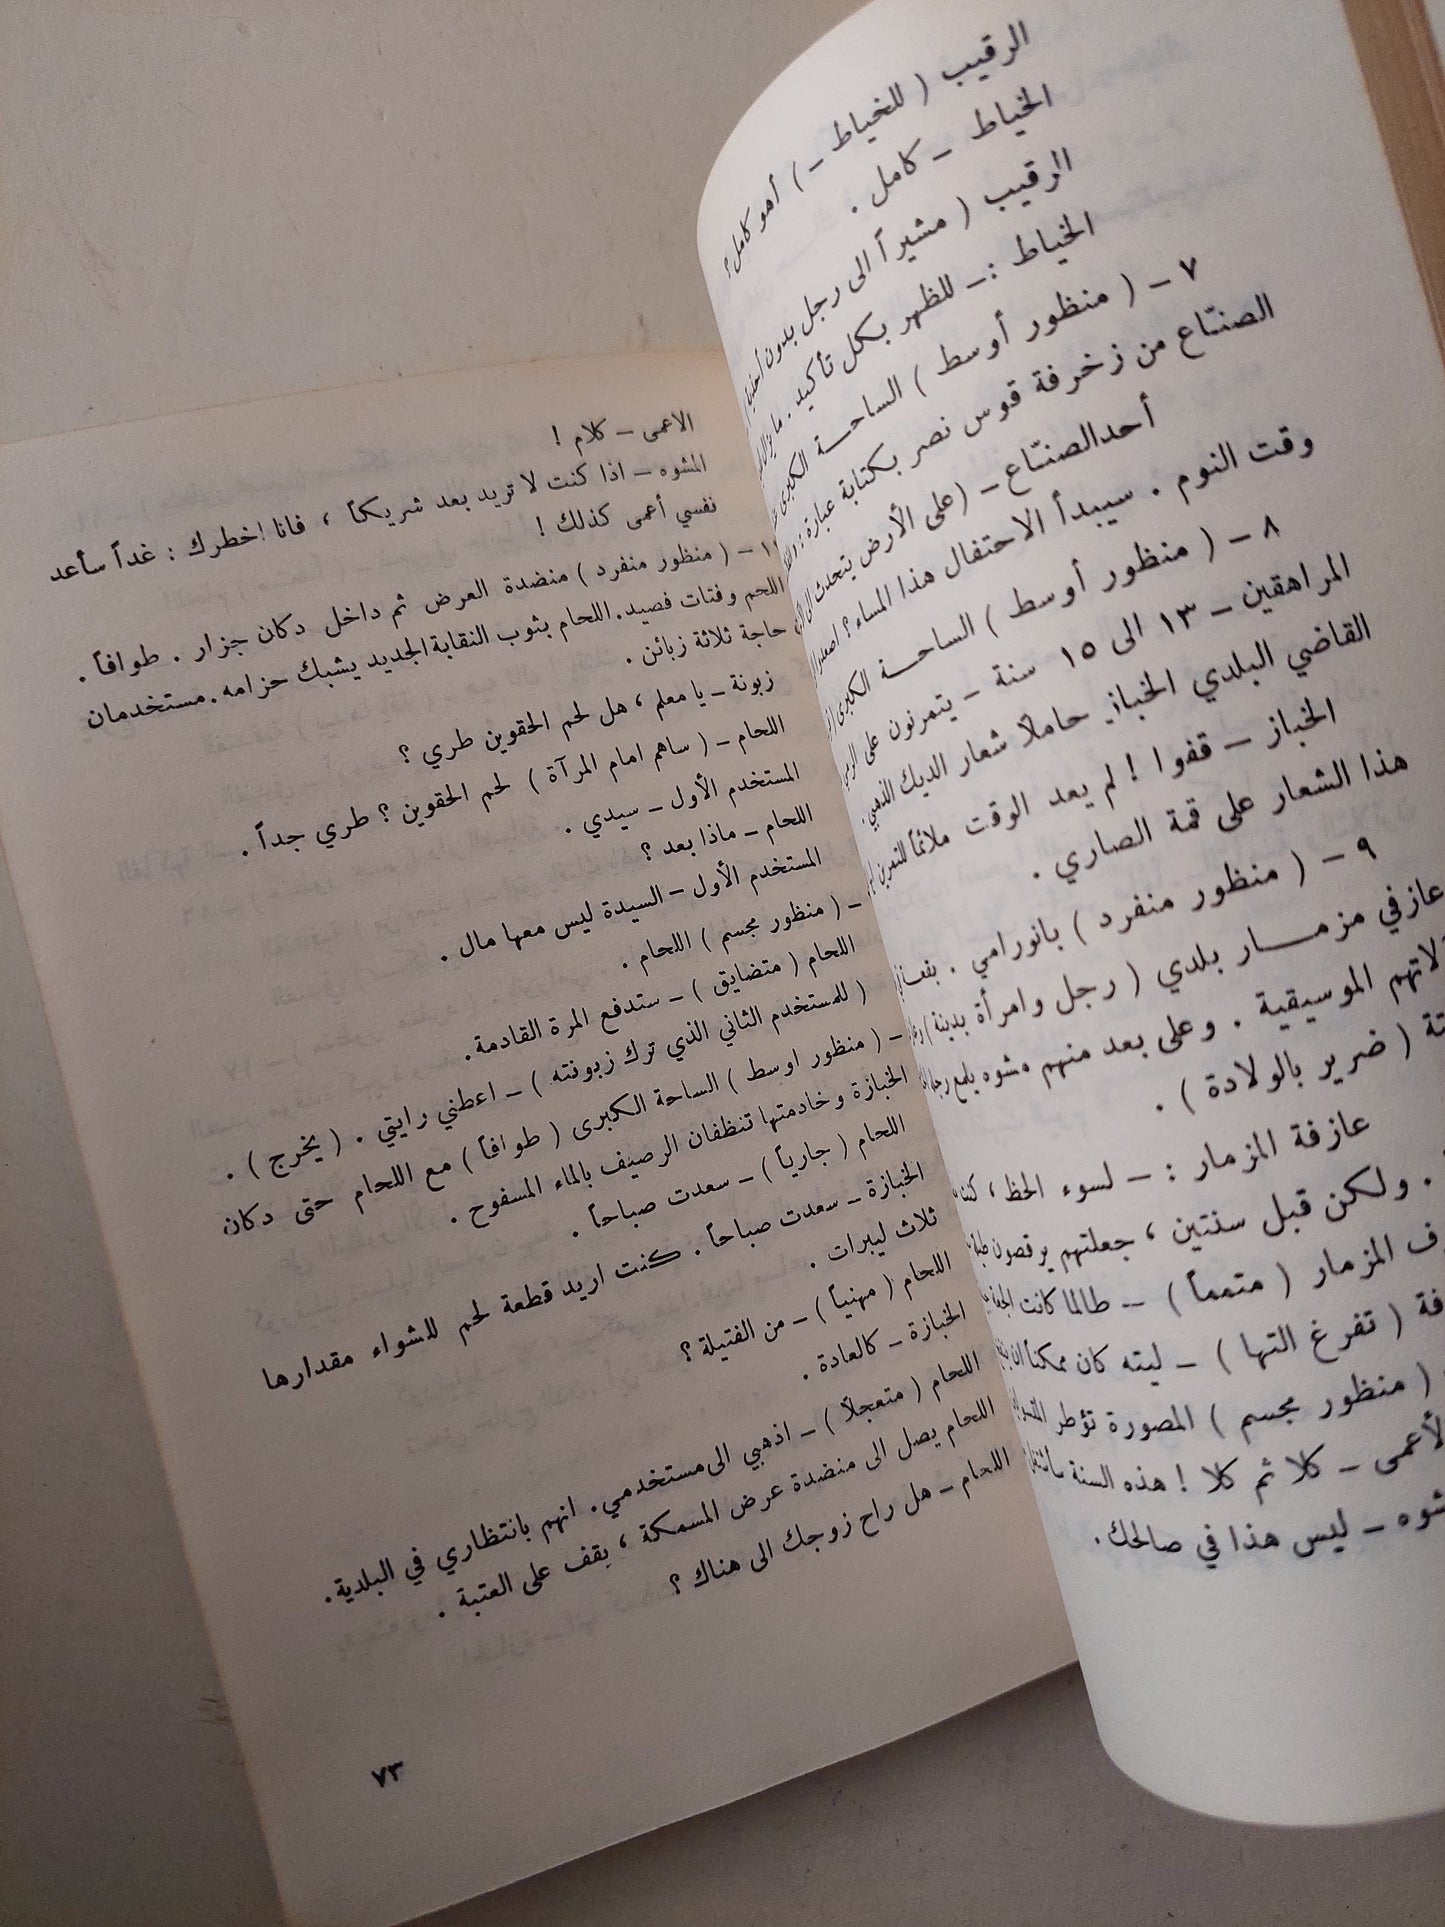 الرقيب ( للخياط – ) أهو كامل ؟
الخياط – كامل .
الرقيب ( مشيراً الى رجل بدون
الخياط :– للظهر بكل تأكيد .
٧ – ( منظور أوسط ) الساحة الكبرى
الصنّاع من زخرفة قوس نصر بكتابة عبارة :
أحد الصنّاع – (على الأرض يتحدث الى
وقت النوم . سيبدأ الاحتفال هذا المساء ؟
٨ – ( منظور أوسط ) الساحة الكبرى
المراهقين – ١٣ الى ١٥ سنة – يتمرنون على
القاضي البلدي الخباز حاملاً شعار الديك الذهبي .
الخباز – قفوا ! لم يعد الوقت ملائماً للتمرين
هذا الشعار على قمة الصاري .
٩ – ( منظور منفرد ) بانورامي .
عازفي مزمار بلدي ( رجل وامرأة بدينة )
لاتهم الموسيقية . وعلى بعد منهم مشوه
تة ( ضرير بالولادة ) .
عازفة المزمار : – لسوء الحظ ،
. ولكن قبل سنتين ، جعلتهم يرقصون
ف المزمار ( متمماً ) – طالما كانت
فة ( تفرغ التها ) – ليته كان ممكناً ان
( منظور مجسم ) المصورة تؤطر
لأعمى – كلا ثم كلا ! هذه السنة
شوه – ليس هذا في صالحك .
الاعمى – كلام !
المشوه – اذا كنت لا تريد بعد شريكاً ، فانا اخطرك : غداً سأعد
نفسي أعمى كذلك !
– ( منظور منفرد ) منضدة العرض ثم داخل دكان جزار . طوافاً .
اللحم وفتات فصيد . اللحام بثوب النقابة الجديد يشبك حزامه . مستخدمان
حاجة ثلاثة زبائن .
زبونة – يا معلم ، هل لحم الحقوين طري ؟
اللحام – ( ساهم امام المرآة ) لحم الحقوين ؟ طري جداً .
المستخدم الأول – سيدي .
اللحام – ماذا بعد ؟
المستخدم الأول – السيدة ليس معها مال .
– ( منظور مجسم ) اللحام .
اللحام ( متضايق ) – ستدفع المرة القادمة .
( للمستخدم الثاني الذي ترك زبونته ) – اعطني رايتي . ( يخرج ) .
– ( منظور اوسط ) الساحة الكبرى ( طوافاً ) مع اللحام حتى دكان
الخبازة وخادمتها تنظفان الرصيف بالماء المسفوح .
اللحام ( جارياً ) – سعدت صباحاً .
الخبازة – سعدت صباحاً . كنت اريد قطعة لحم للشواء مقدارها
ثلاث ليبرات .
اللحام ( مهنياً ) – من الفتيلة ؟
الخبازة – كالعادة .
اللحام ( متعجلاً ) – اذهبي الى مستخدمي . انهم بانتظاري في البلدية .
اللحام يصل الى منضدة عرض المسمكة ، يقف على العتبة .
اللحام – هل راح زوجك الى هناك ؟
٧٣